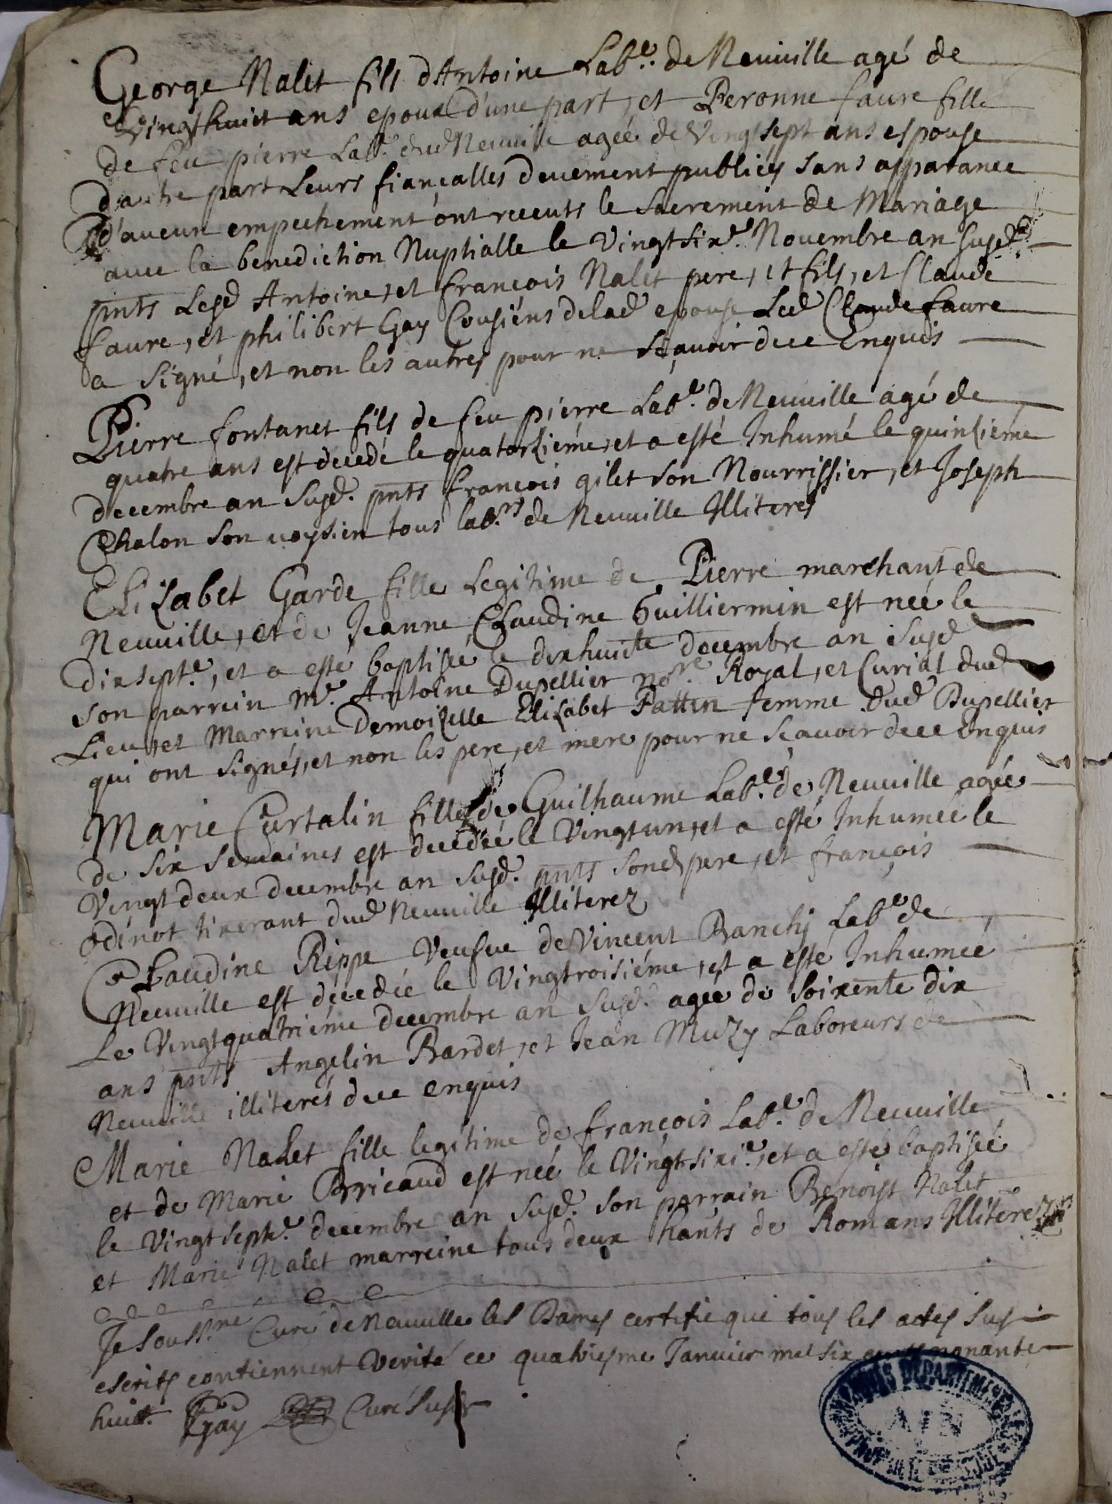 George Nalet fils d'Antoine Labr. de Neuville agé de
Vingthuict ans epoux d'une part, et Peronne faure fille
de feu pierre Labr. dud Neuville agée de Vingtsept ans espouse
d'autre part Leurs fiançalles deuement publiées sans apparance
d'aucun empechement ont receuts le sacrement de Mariage
avec la benediction Nuptialle le Vingtsixe. Novembre an susd.
pnts Lesd Antoine, et françois Nalet pere, et fils, et Claude
faure, et philibert Gay Cousiens de lad epouse Led Claude faure
a signé, et non les autres pour ne sçavoir de ce Enquis
Pierre fontanet fils de feu pierre Labr. de Neuville agé de
quatre ans est decedé le quatorziéme, et a esté Inhumé le quinziéme
decembre an susd. pnts françois gilet son Nourrissier, et Joseph
Chalon son voysien tous labrs. de Neuville Illiteres
Elizabet Garde fille Legitime de Pierre marchant de
Neuville, et de Jeanne Claudine Guilliermin est née le
dixsepte, et a esté baptisée le dixhuicte decembre an susd
son parrein Mr. Antoine Dupellier nore. Royal, et Curial dud
Lieu, et Marreine Demoizelle Elizabet Pattin femme dud Dupellier
qui ont signés, et non les pere, et mere pour ne sçavoir de ce Enquis
Marie Curtalin fille de Guilhaume Labr. de Neuville agée
de six semaines est decedée le Vingtun, et a esté Inhumée le
Vingtdeux decembre an susd. pnts sond pere, et françois
odinot tixerant dud Neuville Illiterez
Claudine Rippe Veufve de Vincent Banchy Labr de
Neuville est décedée le Vingtroisiéme, et a esté Inhumée
Le Vingtquatriéme decembre an susd. agée de soixente dix
ans pnts Angelin Bardet, et Jean Muzy Laboreurs de
Neuville illiterés de ce enquis
Marie Nalet fille legitime de françois Labr. de Neuville
et de Marie Brricaud est née le Vingtsixie., et a esté baptisée
le Vingtsepte. decembre an susd. son parrain Benoist Nalet
et Marie Nalet marreine tous deux hants de Romans Illiterez
Je soussne Curé de Neuville les Dames certifie que tous les actes sus
escrits contiennent Verité ce quatriesme Janvier mil six cents nonante
huict. Gay Curé susd
ARCHIVES DEPARTEMENTALES
AIN